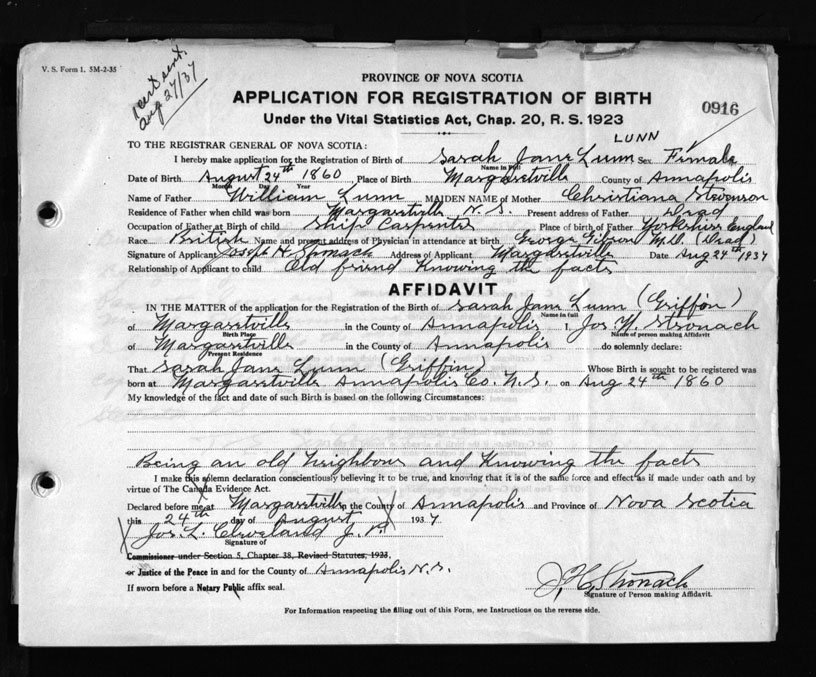 V. S. Form 1. 5M-2-35
1 cert sent
Aug 27/37
PROVINCE OF NOVA SCOTIA
APPLICATION FOR REGISTRATION OF BIRTH
0916
Under the Vital Statistics Act, Chap. 20, R. S. 1923
LUNN
TO THE REGISTRAR GENERAL OF NOVA SCOTIA:
I hereby make application for the Registration of Birth of Sarah Jane Lunn Sex Female
Name in Full
Date of Birth August 24th 1860 Place of Birth Margaretville County of Annapolis
Month Day Year
Name of Father William Lunn MAIDEN NAME of Mother Christiana Stevenson
Residence of Father when child was born Margaretville N. S. Present address of Father Dead
Occupation of Father at Birth of child Ship Carpenter Place of birth of Father Yorkshire England
Race British Name and present address of Physician in attendance at birth George Gibson M.D. (Dead)
Signature of Applicant Joseph H Stronach Address of Applicant Margaretville Date Aug 24th 1937
Relationship of Applicant to child Old friend Knowing the facts
AFFIDAVIT
IN THE MATTER of the application for the Registration of the Birth of Sarah Jane Lunn (Griffin)
Name in full
of Margaretville in the County of Annapolis I, Jos. H. Stronach
Birth Place Name of person making Affidavit
of Margaretville in the County of Annapolis do solemnly declare:
Present Residence
That Sarah Jane Lunn (Griffin) Whose Birth is sought to be registered was
born at Margaretville Annapolis Co. N.S. on Aug 24th 1860
My knowledge of the fact and date of such Birth is based on the following Circumstances:
Being an old neighbour and Knowing the facts
I make this solemn declaration conscientiously believing it to be true, and knowing that it is of the same force and effect as if made under oath and by
virtue of The Canada Evidence Act.
Declared before me at Margaretville in the County of Annapolis and Province of Nova Scotia
this 24th day of August 1937
Jos. L. Cleveland J. P.
Signature of
Commissioner under Section 5, Chapter 38, Revised Statutes, 1923,
or Justice of the Peace in and for the County of Annapolis N.S.
If sworn before a Notary Public affix seal.
J. H. Stronach
Signature of Person making Affidavit.
For Information respecting the filling out of this Form, see Instructions on the reverse side.